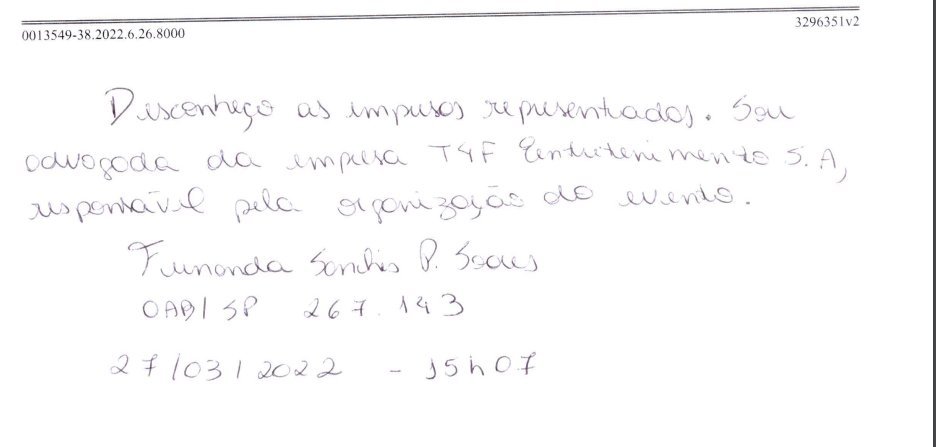 3296351v2
0013549-38.2022.6.26.8000
Desconheço as empresas representadas. Sou
advogada da empresa T4F Entretenimento S.A,
responsável pela organização do evento.
Fernanda Sanches P. Soares
OAB/SP 267.143
27/03/2022 - 15h07